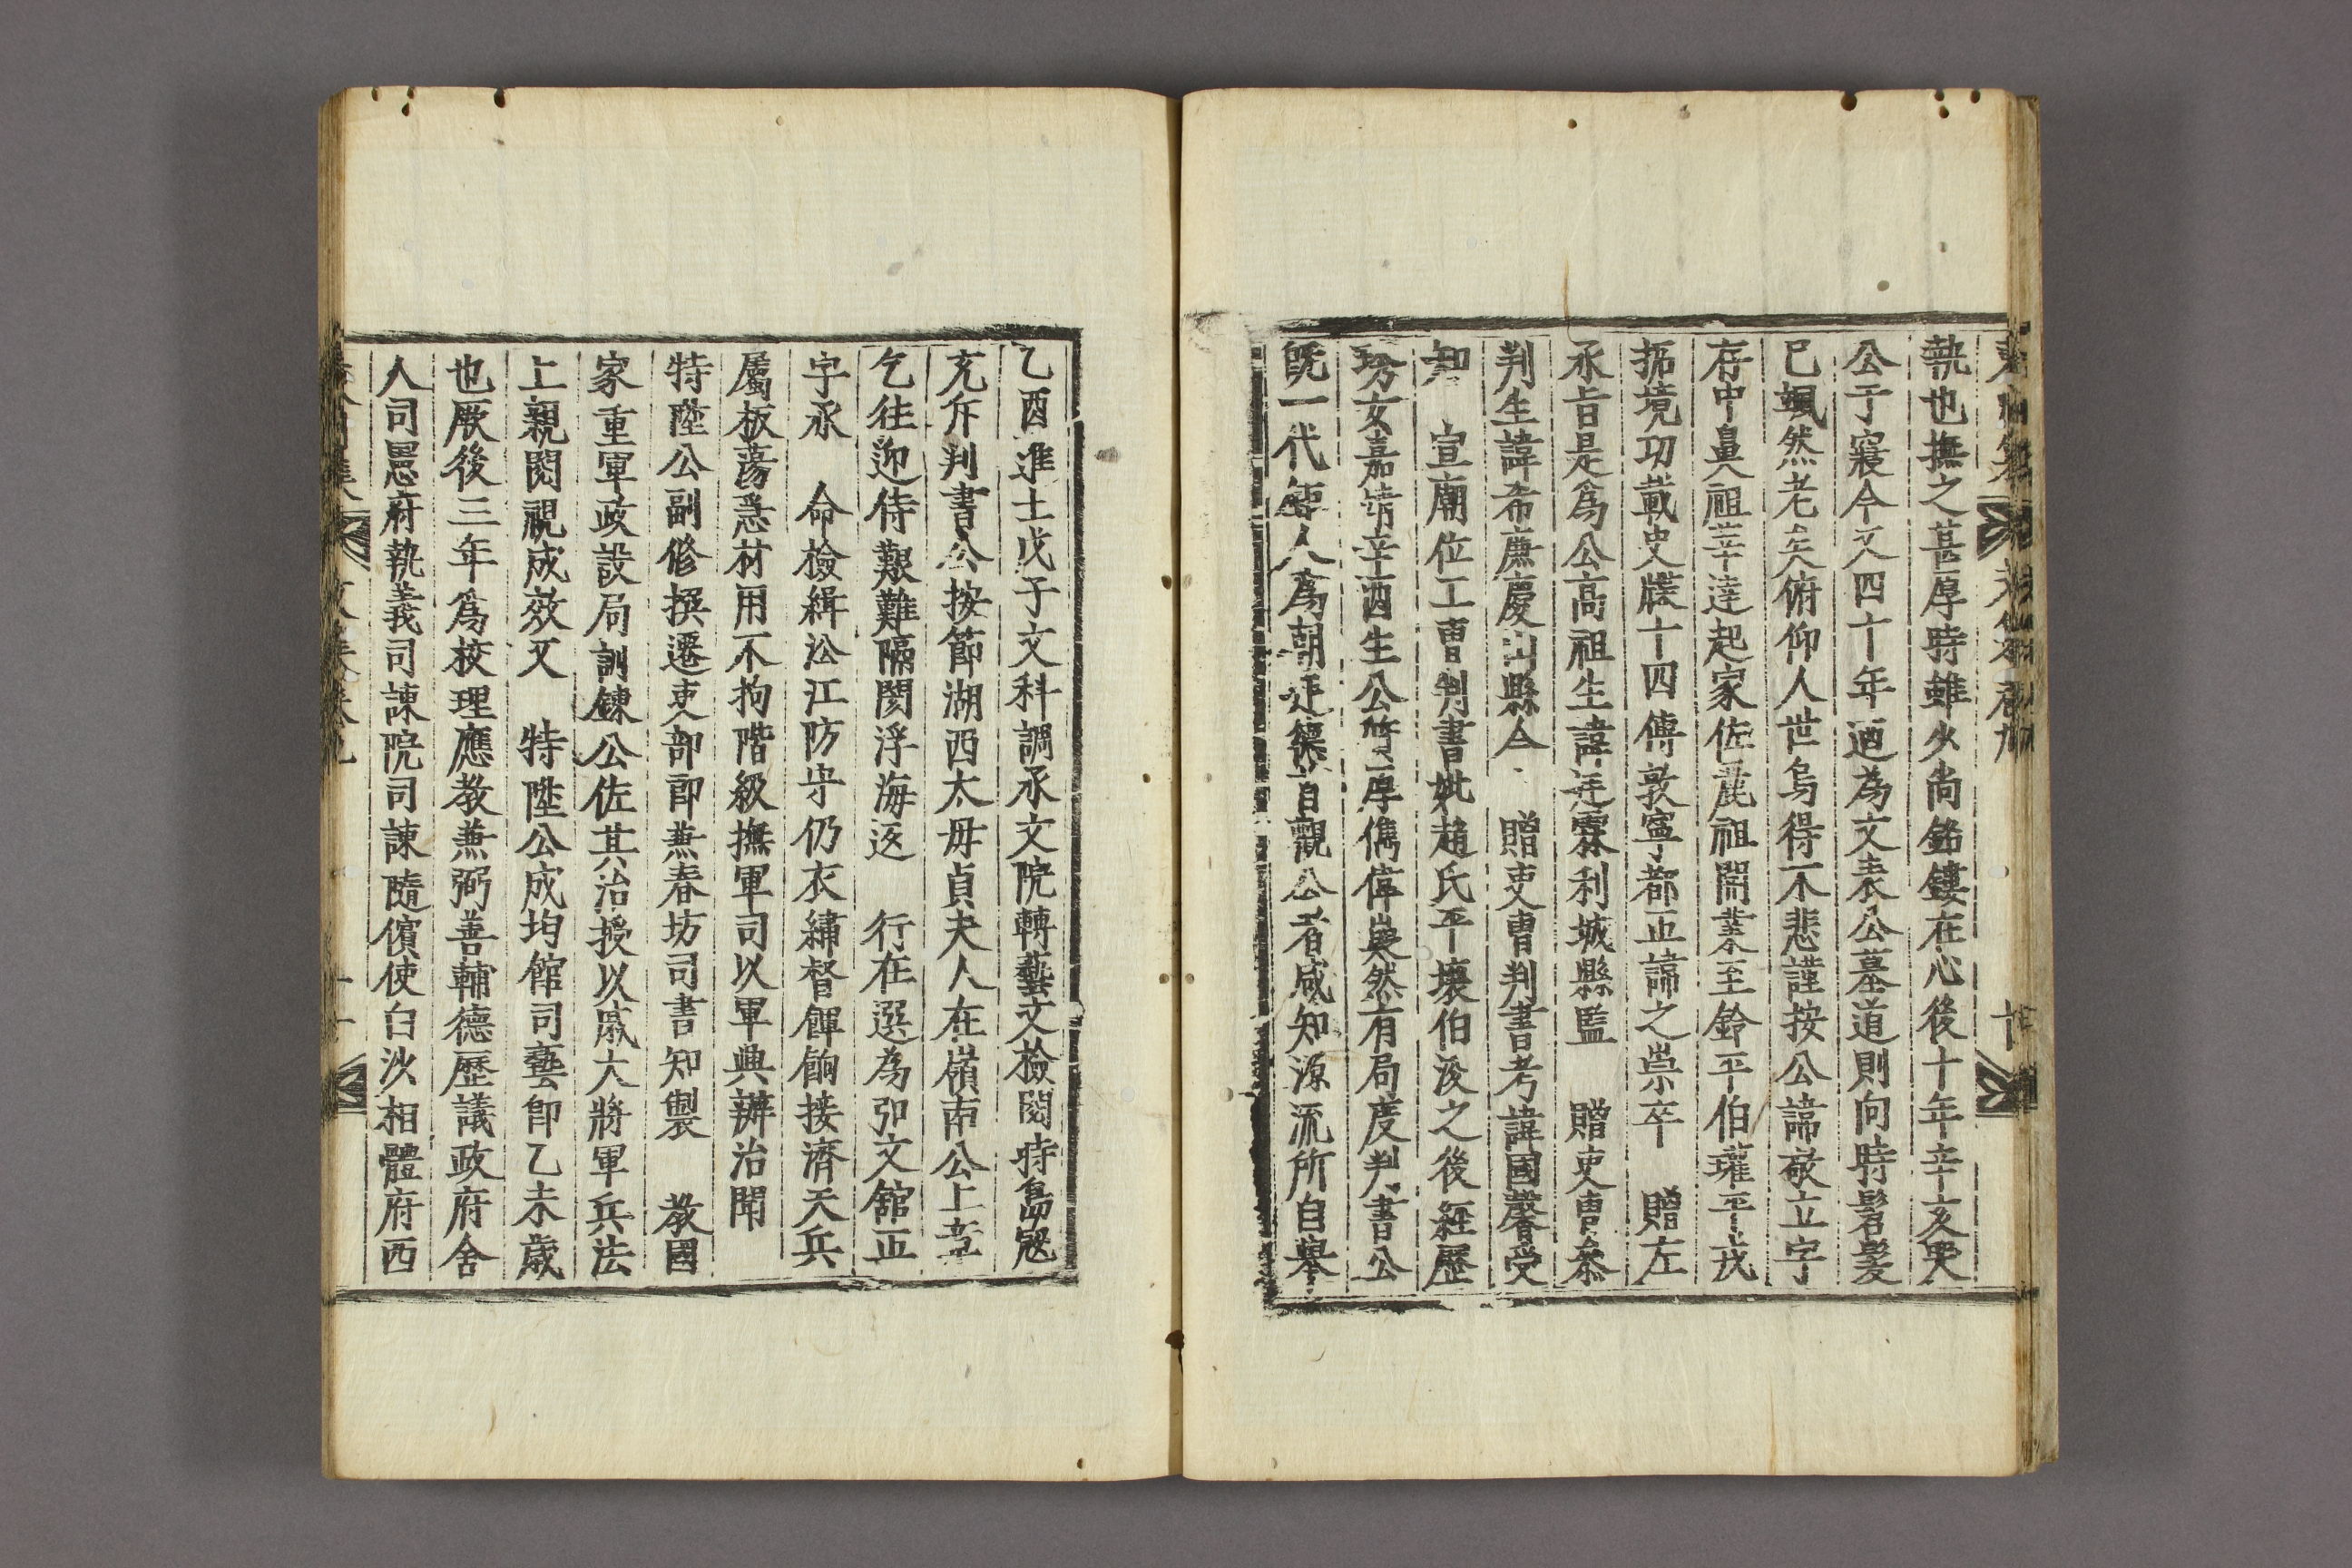 執也撫之甚厚時雖少尚銘鏤在心後十年辛亥哭
公于寢今又四十年迺為文表公墓道則向時髫髮
已颯然老矣俯仰人世烏得不悲謹按公諱敬立字
存中鼻祖莘達起家佐麗祖開業至鈴平伯瓘平戎
拓境功載史牒十四傳敦寧都正諱之崇卒 贈左
承旨是爲公高祖生諱廷霖利城縣監 贈吏曹叅
判生諱希廉慶山縣令 贈吏曹判書考諱國馨受
知 宣廟位工曹判書妣趙氏平壤伯浚之後經歷
玏女嘉靖辛酉生公 厚儁偉嶷然有局度判書公
旣一代 人爲朝廷 觀公者咸知源流所自擧
乙酉進士戊子文科調承文院轉藝文檢閱時島冦
充斥判書公按節湖西太母貞夫人在嶺南公上章
乞徃迎侍艱難隔閡浮海返 行在選為弘文舘正
字承 命檢緝沿江防守仍衣繡督餫餉接濟天兵
屬板蕩急材用不拘階級撫軍司以軍興辦治聞
特陞公副修撰遷吏部郎兼春坊司書知製 敎國
家重軍政設局訓鍊公佐其治授以戚大將軍兵法
上親閱視成效又 特陞公成均館司藝卽乙未歳
也厥後三年爲校理應教兼弼善輔德歷議政府舍
人司憲府執義司諫院司諫隨儐使白沙相體府西